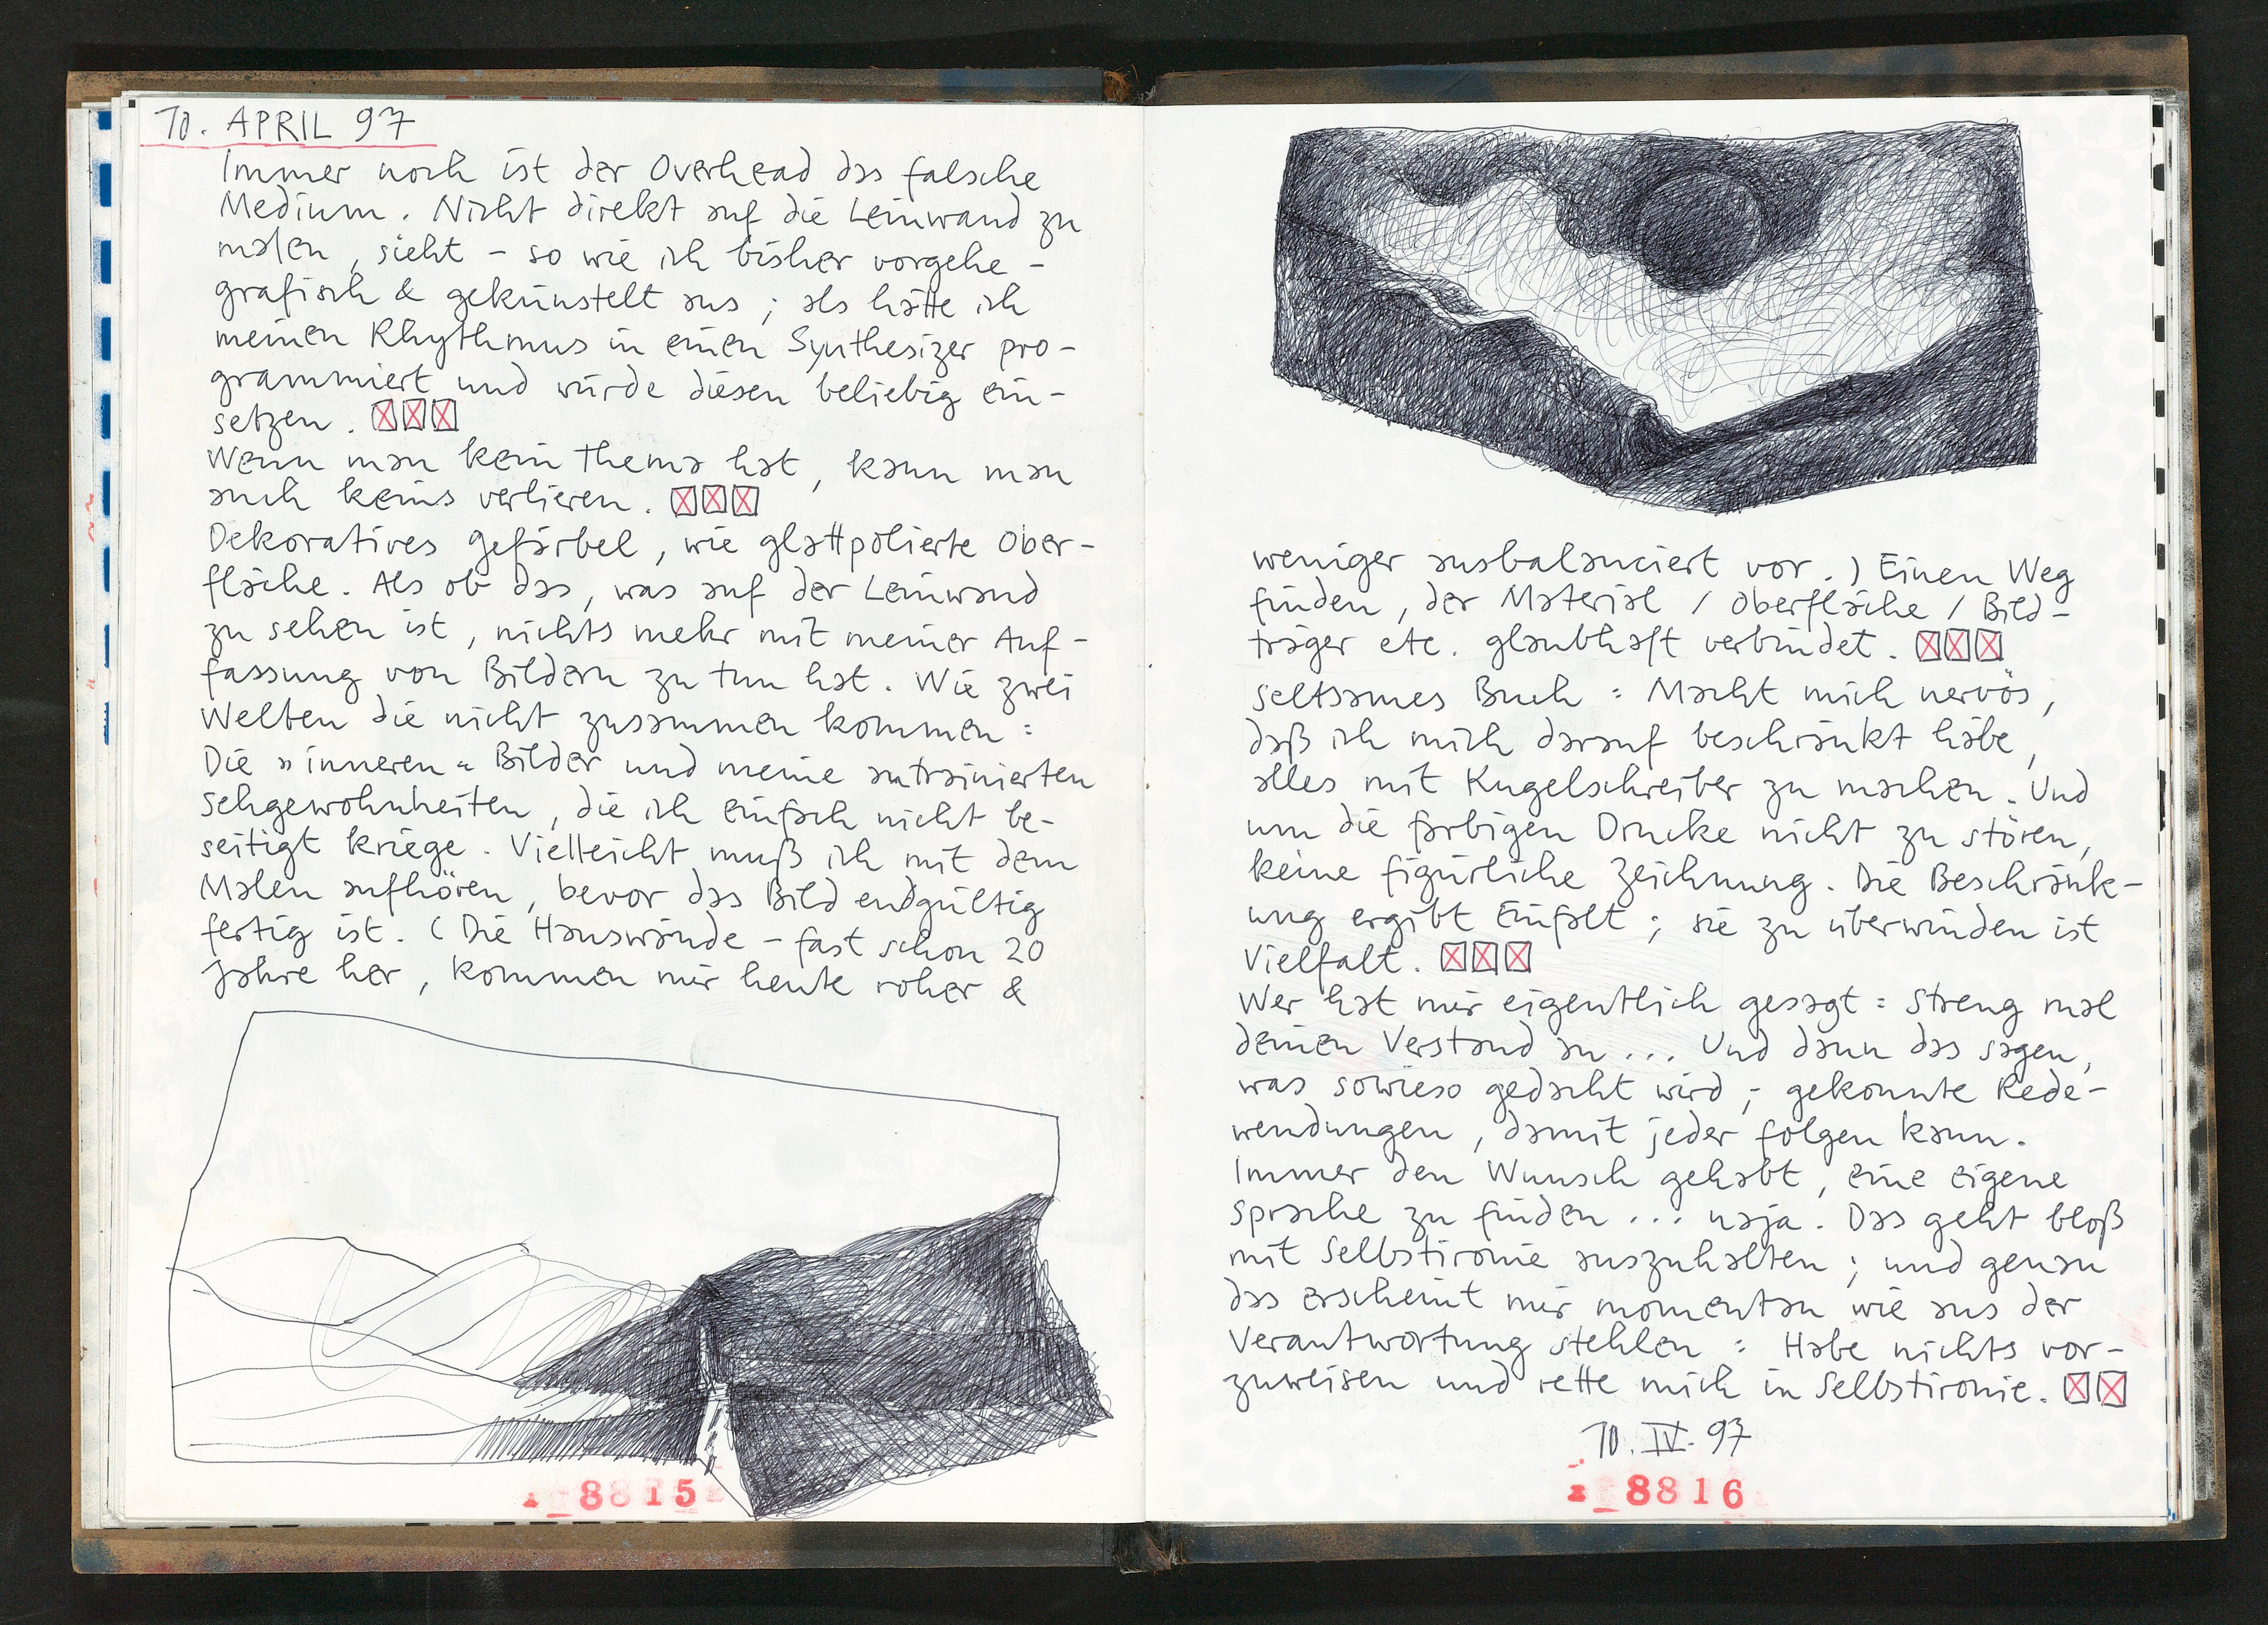 10. APRIL 97
Immer noch ist der Overhead das falsche
Medium. Nicht direkt auf die Leinwand zu
malen, sieht – so wie ich bisher vorgehe –
grafisch & gekünstelt aus; als hätte ich
meinen Rhythmus in einen Synthesizer pro-
grammiert und würde diesen beliebig ein-
setzen. ☒☒☒
Wenn man kein Thema hat, kann man
auch keins verlieren. ☒☒☒
Dekoratives Gefärbel, wie glattpolierte Ober-
fläche. Als ob das, was auf der Leinwand
zu sehen ist, nichts mehr mit meiner Auf-
fassung von Bildern zu tun hat. Wie zwei
Welten die nicht zusammen kommen:
Die »inneren« Bilder und meine antrainierten
Sehgewohnheiten, die ich einfach nicht be-
seitigt kriege. Vielleicht muß ich mit dem
Malen aufhören, bevor das Bild endgültig
fertig ist. (Die Hauswände – fast schon 20
Jahre her, kommen mir heute roher &
8815
weniger ausbalanciert vor.) Einen Weg
finden, der Material / Oberfläche / Bild-
träger etc. glaubhaft verbindet. ☒☒☒
Seltsames Buch: Macht mich nervös,
daß ich mich darauf beschränkt habe,
alles mit Kugelschreiber zu machen. Und
um die farbigen Drucke nicht zu stören,
keine figürliche Zeichnung. Die Beschränk-
ung ergibt Einfalt; sie zu überwinden ist
Vielfalt. ☒☒☒
Wer hat mir eigentlich gesagt: Streng mal
deinen Verstand an... Und dann das sagen,
was sowieso gedacht wird; gekonnte Rede-
wendungen, damit jeder folgen kann.
Immer den Wunsch gehabt, eine eigene
Sprache zu finden... naja. Das geht bloß
mit Selbstironie auszuhalten; und genau
das erscheint mir momentan wie aus der
Verantwortung stehlen: Habe nichts vor-
zuweisen und rette mich in Selbstironie. ☒☒
10. IV. 97
8816